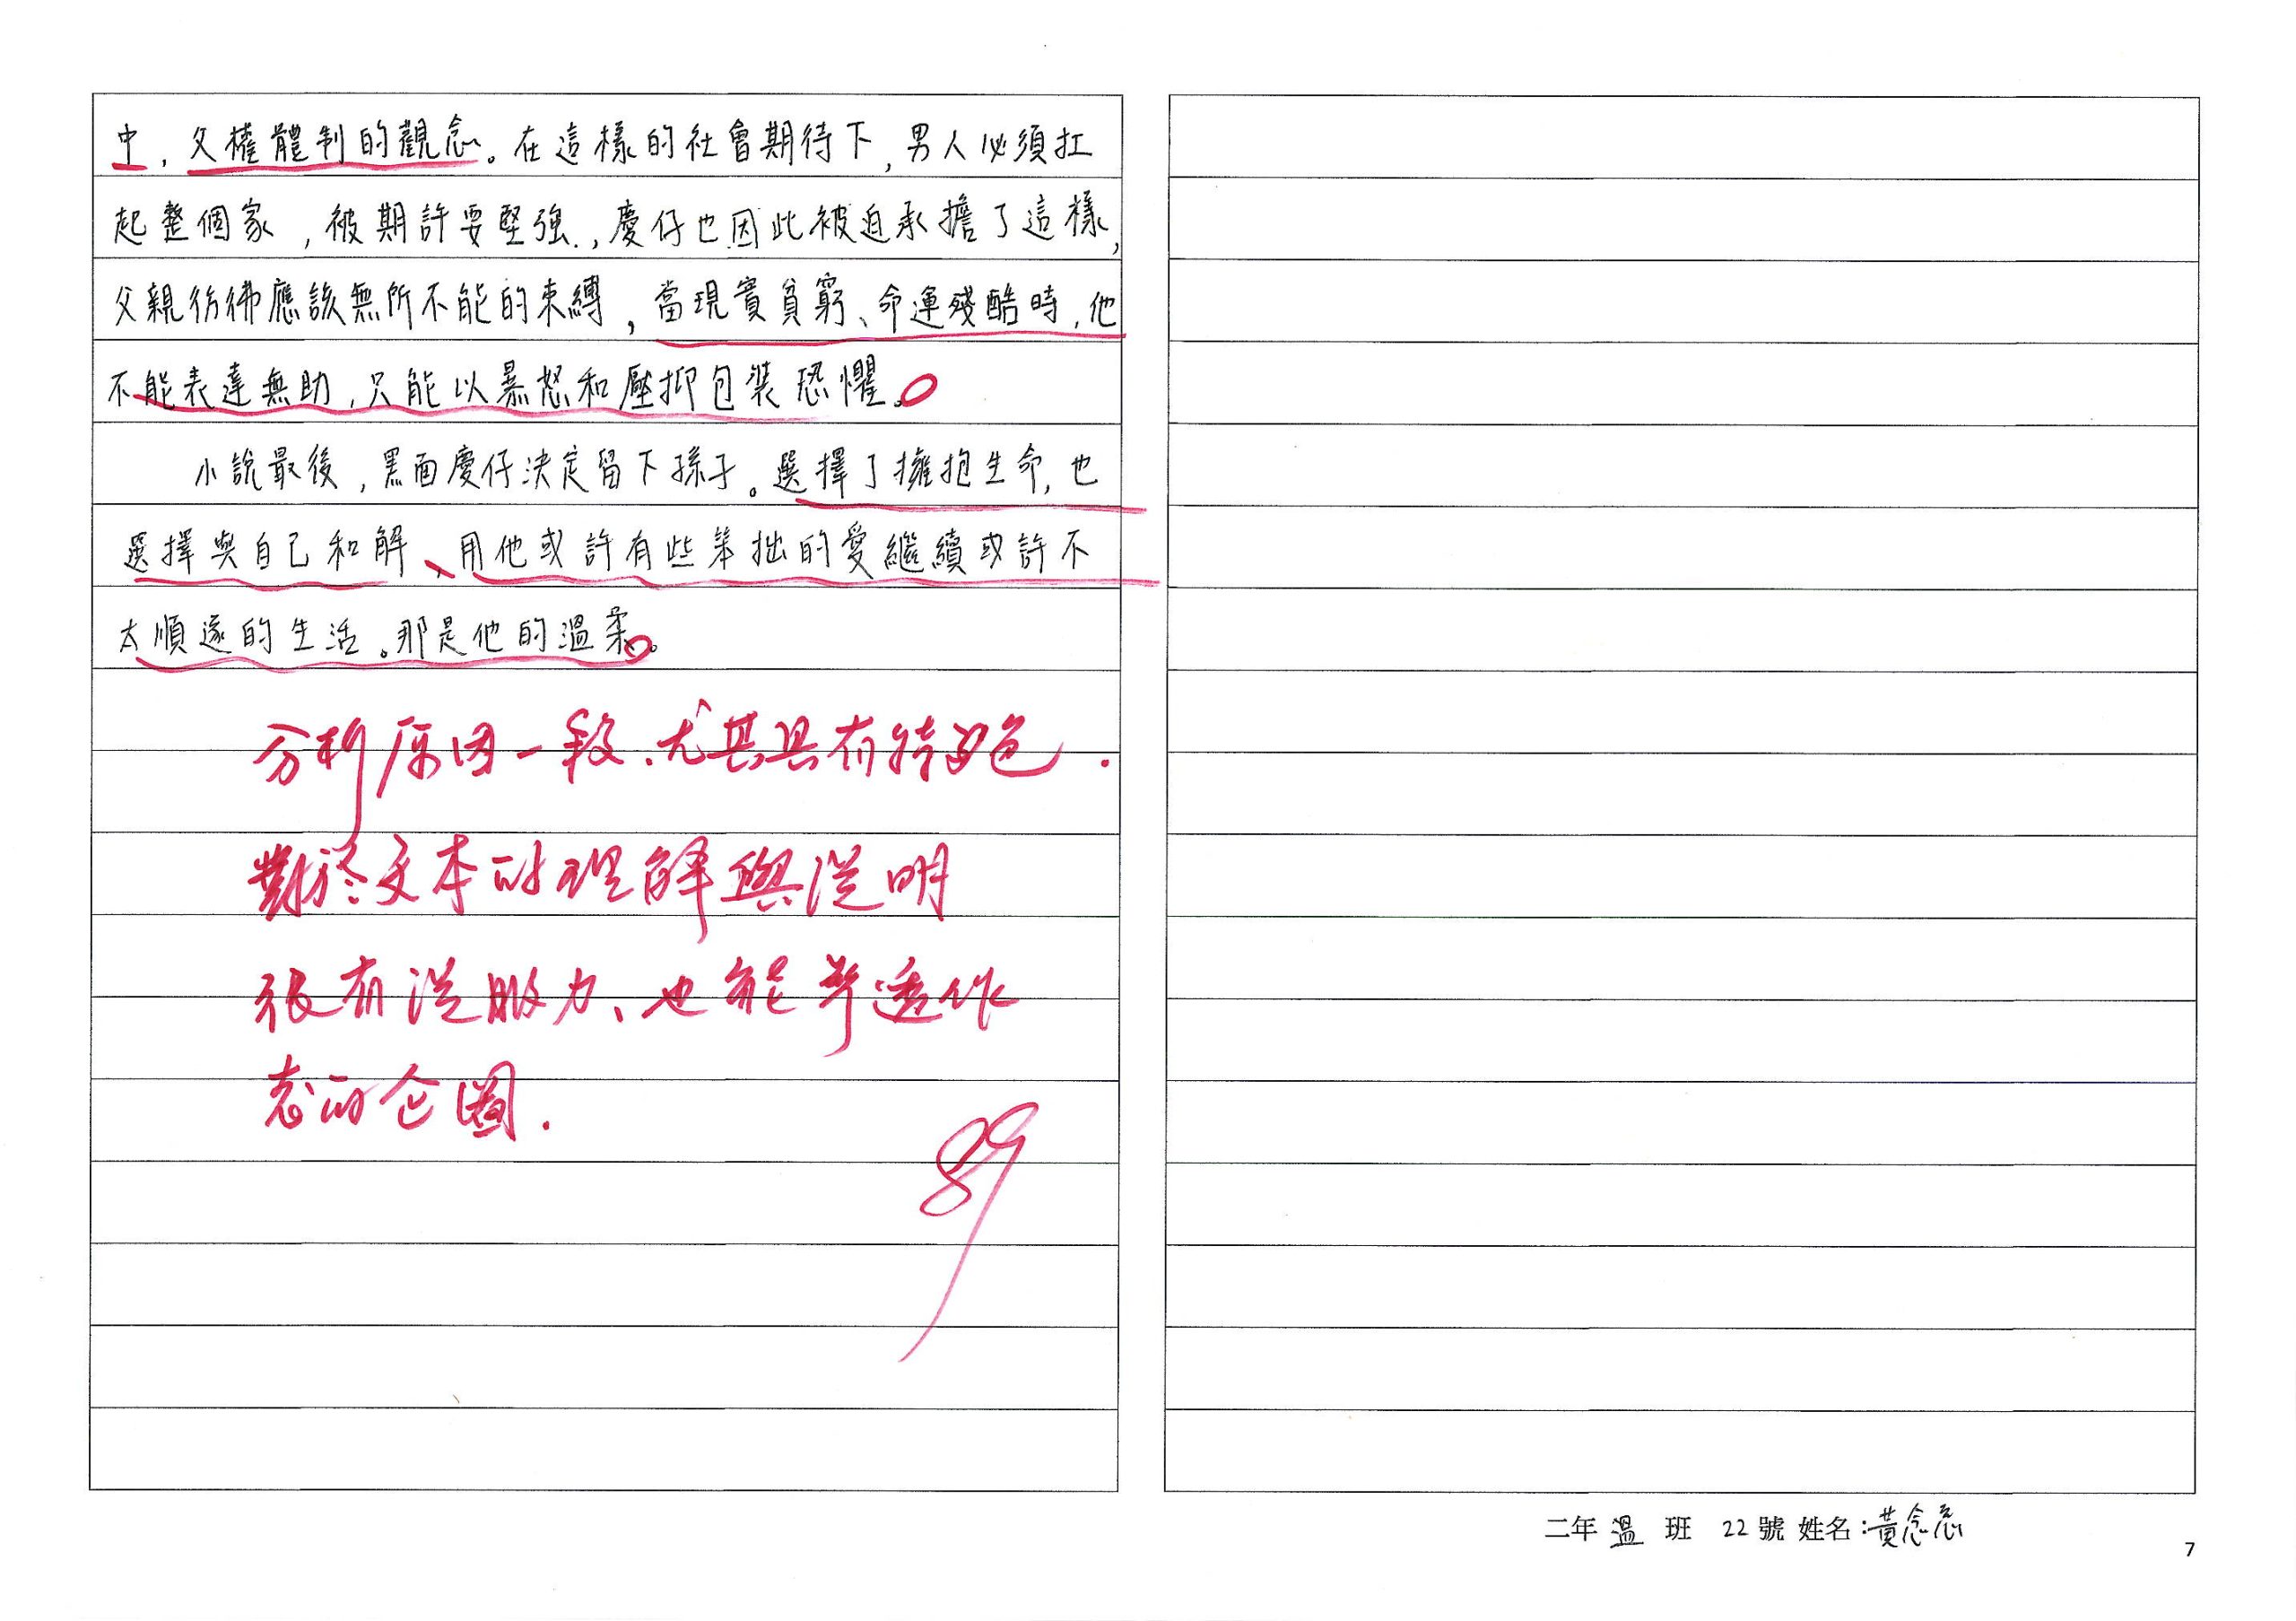 中，父權體制的觀念。在這樣的社會期待下，男人必須扛
起整個家，被期許要堅強，慶仔也因此被迫承擔了這樣，
父親彷彿應該無所不能的束縛，當現實貧窮、命運殘酷時，他
不能表達無助，只能以暴怒和壓抑包裝恐懼。
小說最後，黑面慶仔決定留下孫子。選擇了擁抱生命，也
選擇與自己和解、用他或許有些笨拙的愛繼續或許不
太順遂的生活。那是他的溫柔。
分析原因一段，尤其具有特色．
對於文本的理解與說明
很有說服力、也能參透作
者的企圖．
89
二年 溫 班 22號 姓名：黃念
7